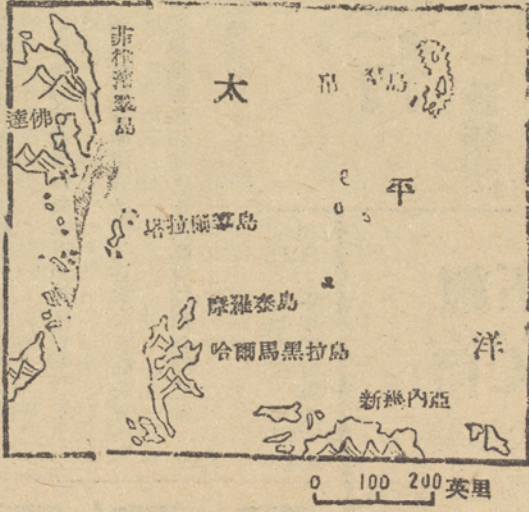 菲律濱羣島
太
帛 琉島
達佛
平
塔拉爾羣島
摩羅泰島
哈爾馬黑拉島
洋
新幾內亞
0 100 200 英里